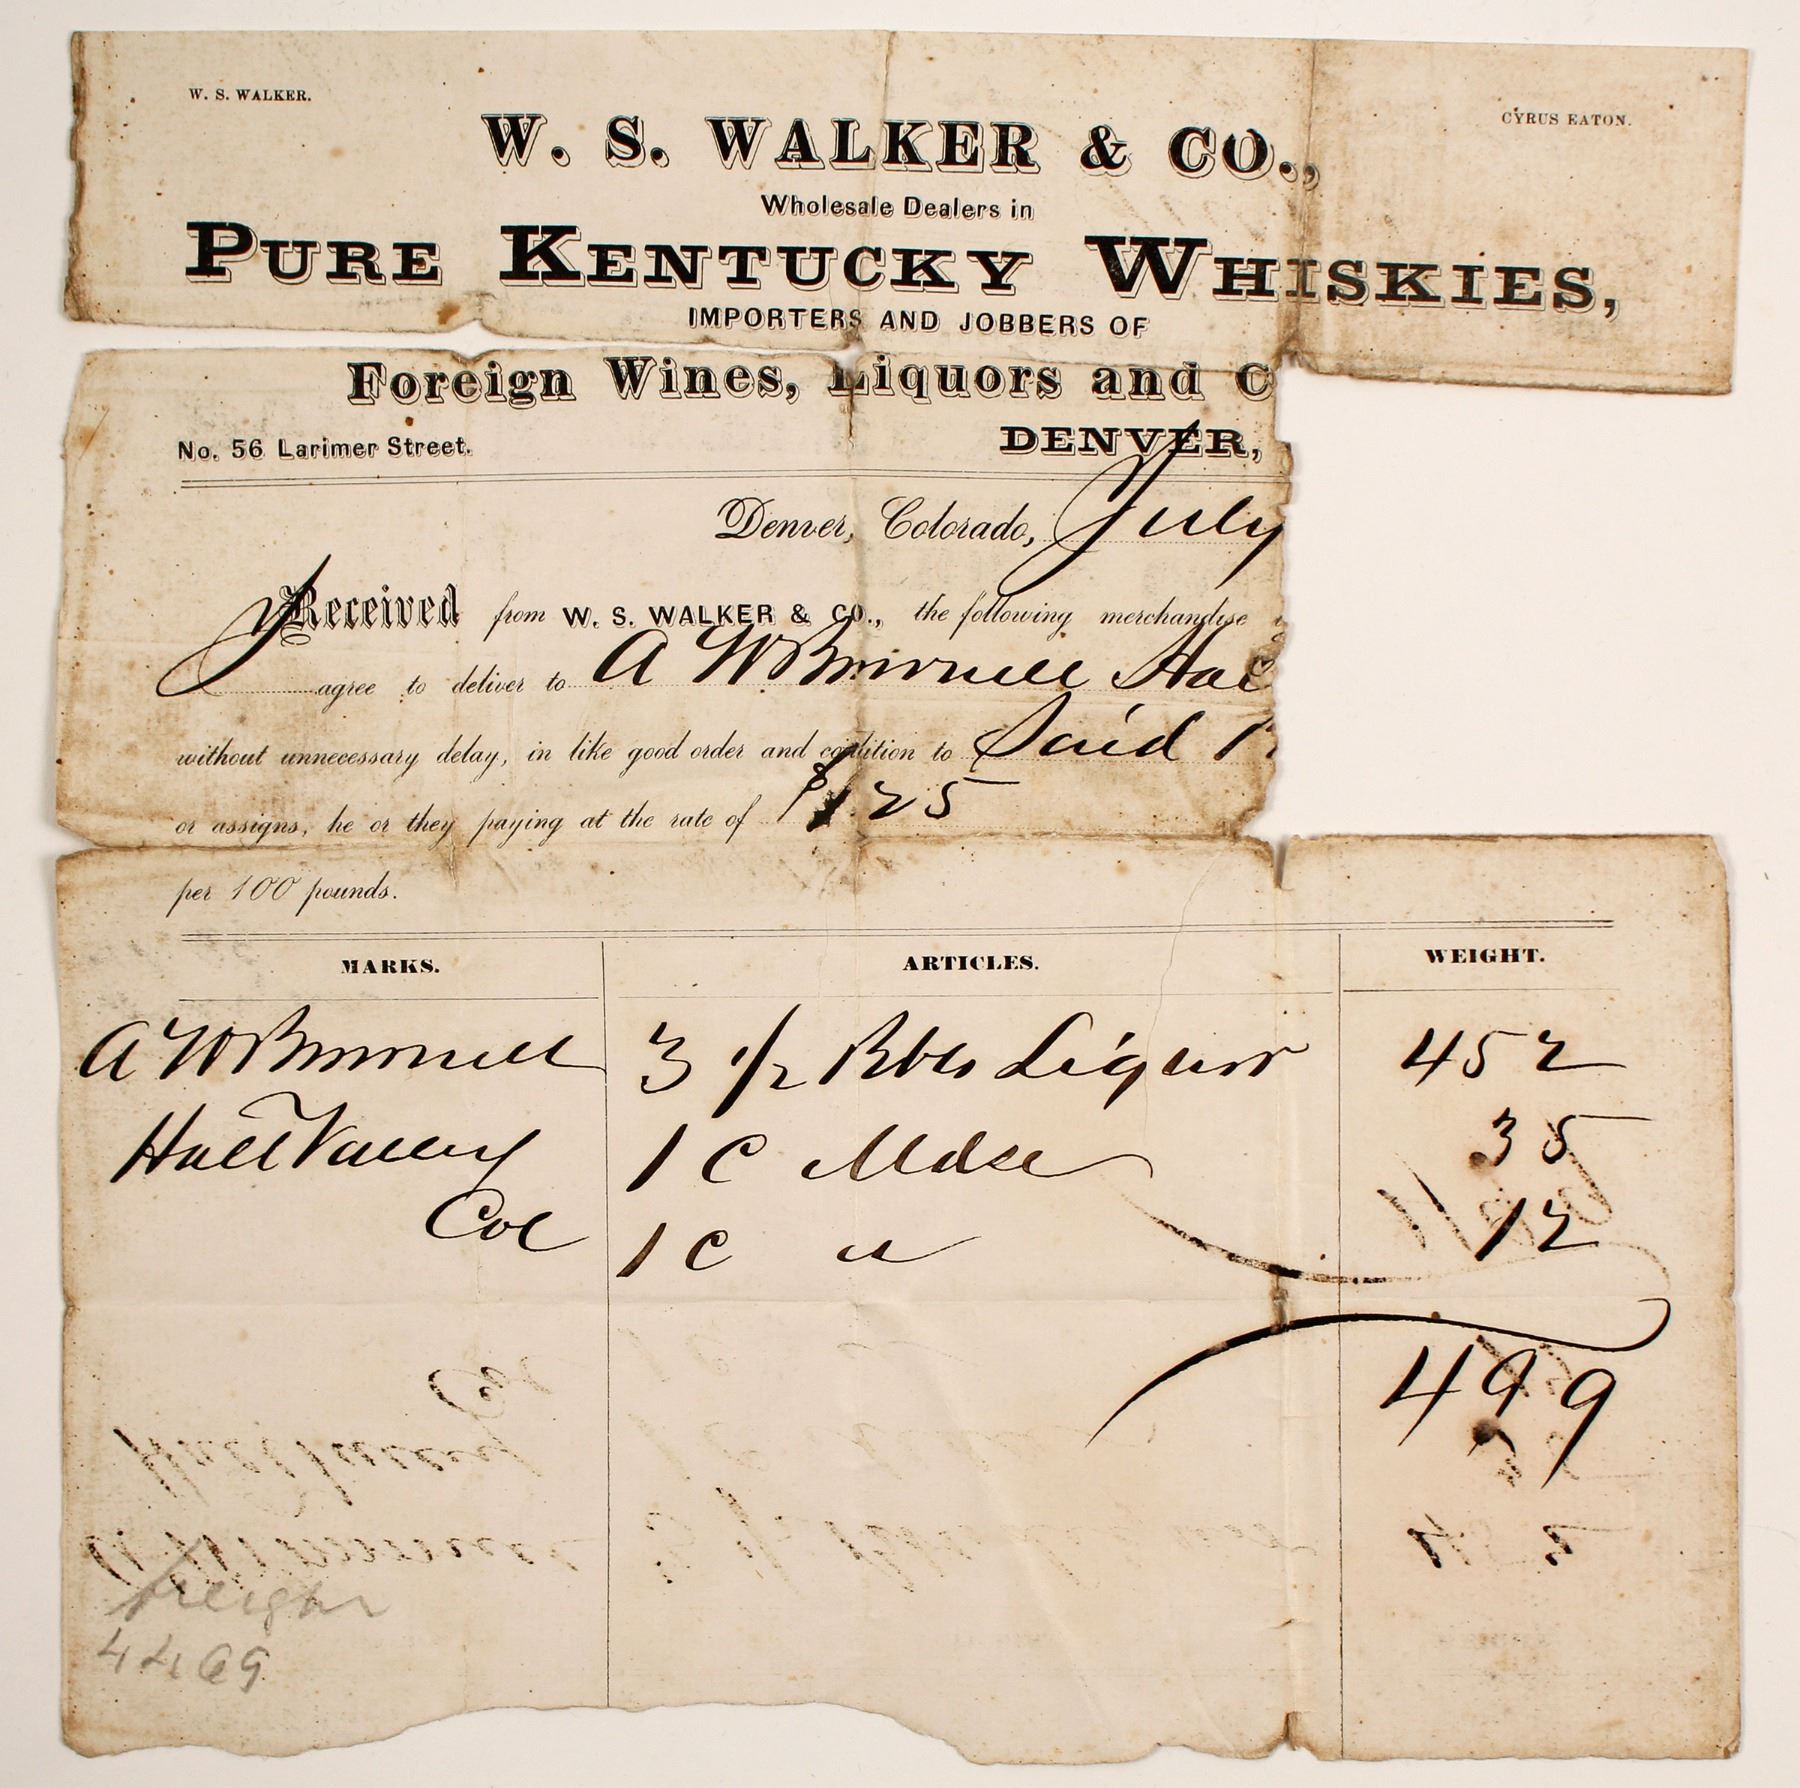 W. S. WALKER.
CYRUS EATON.
W. S. WALKER & CO.,
Wholesale Dealers in
PURE KENTUCKY WHISKIES,
IMPORTERS AND JOBBERS OF
Foreign Wines, Liquors and C
No. 56 Larimer Street.
DENVER,
Denver, Colorado, July
Received from W. S. WALKER & CO., the following merchandise
agree to deliver to A W
without unnecessary delay, in like good order and condition to Said
or assigns, he or they paying at the rate of $1.25
per 100 pounds.
MARKS. ARTICLES. WEIGHT.
A W 3 1/2 Bbls Liquor 452
Hall Valley 1 C Mdse 35
Col 1 C " 12
499
freight
4469